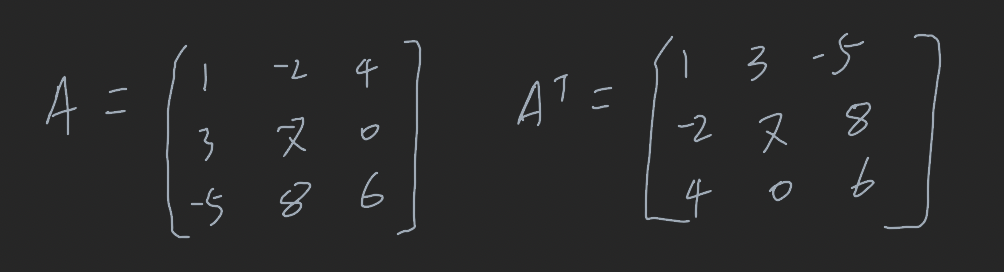 A = [1 -2 4
3 7 0
-5 8 6]
A^T = [1 3 -5
-2 7 8
4 0 6]